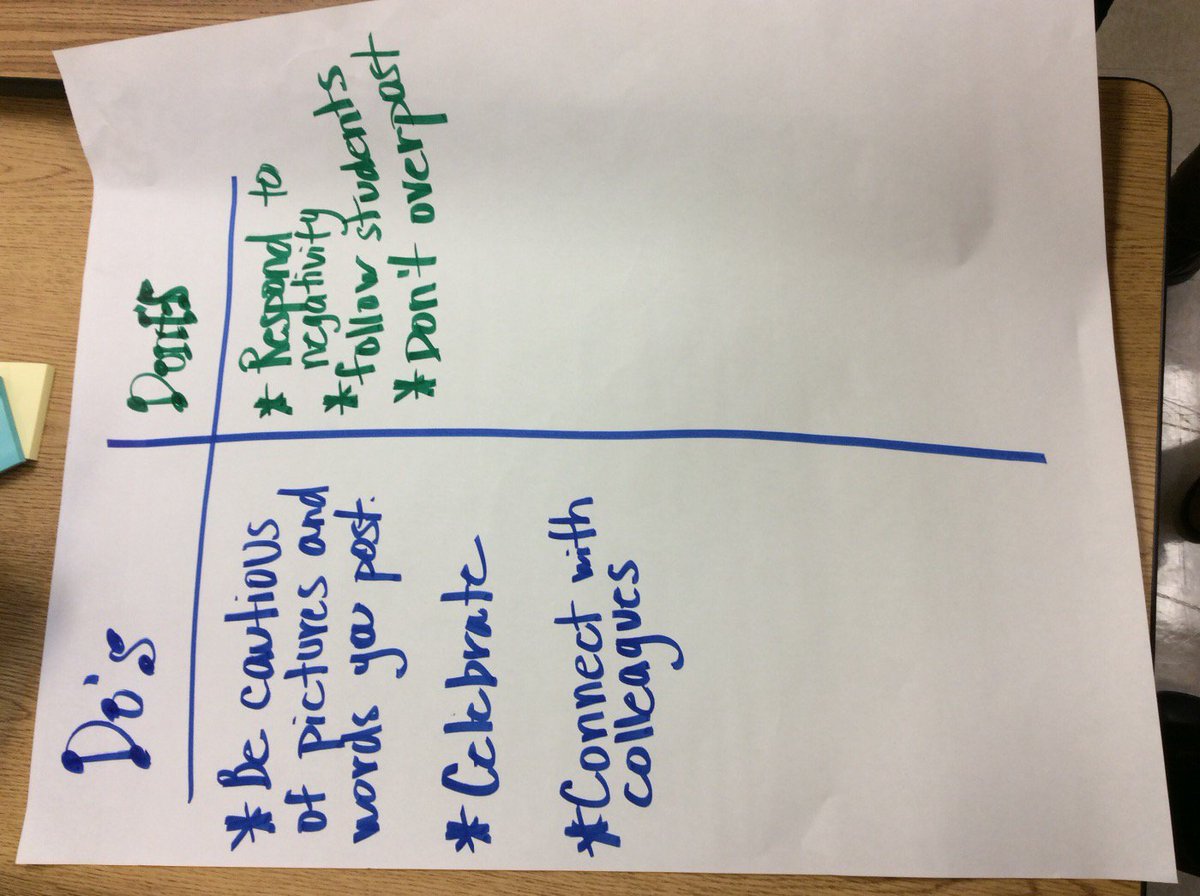 Do's
* Be cautious
of pictures and
words you post.
* Celebrate
* Connect with
colleagues
Don'ts
* Respond to
negativity
* follow students
* Don't overpost